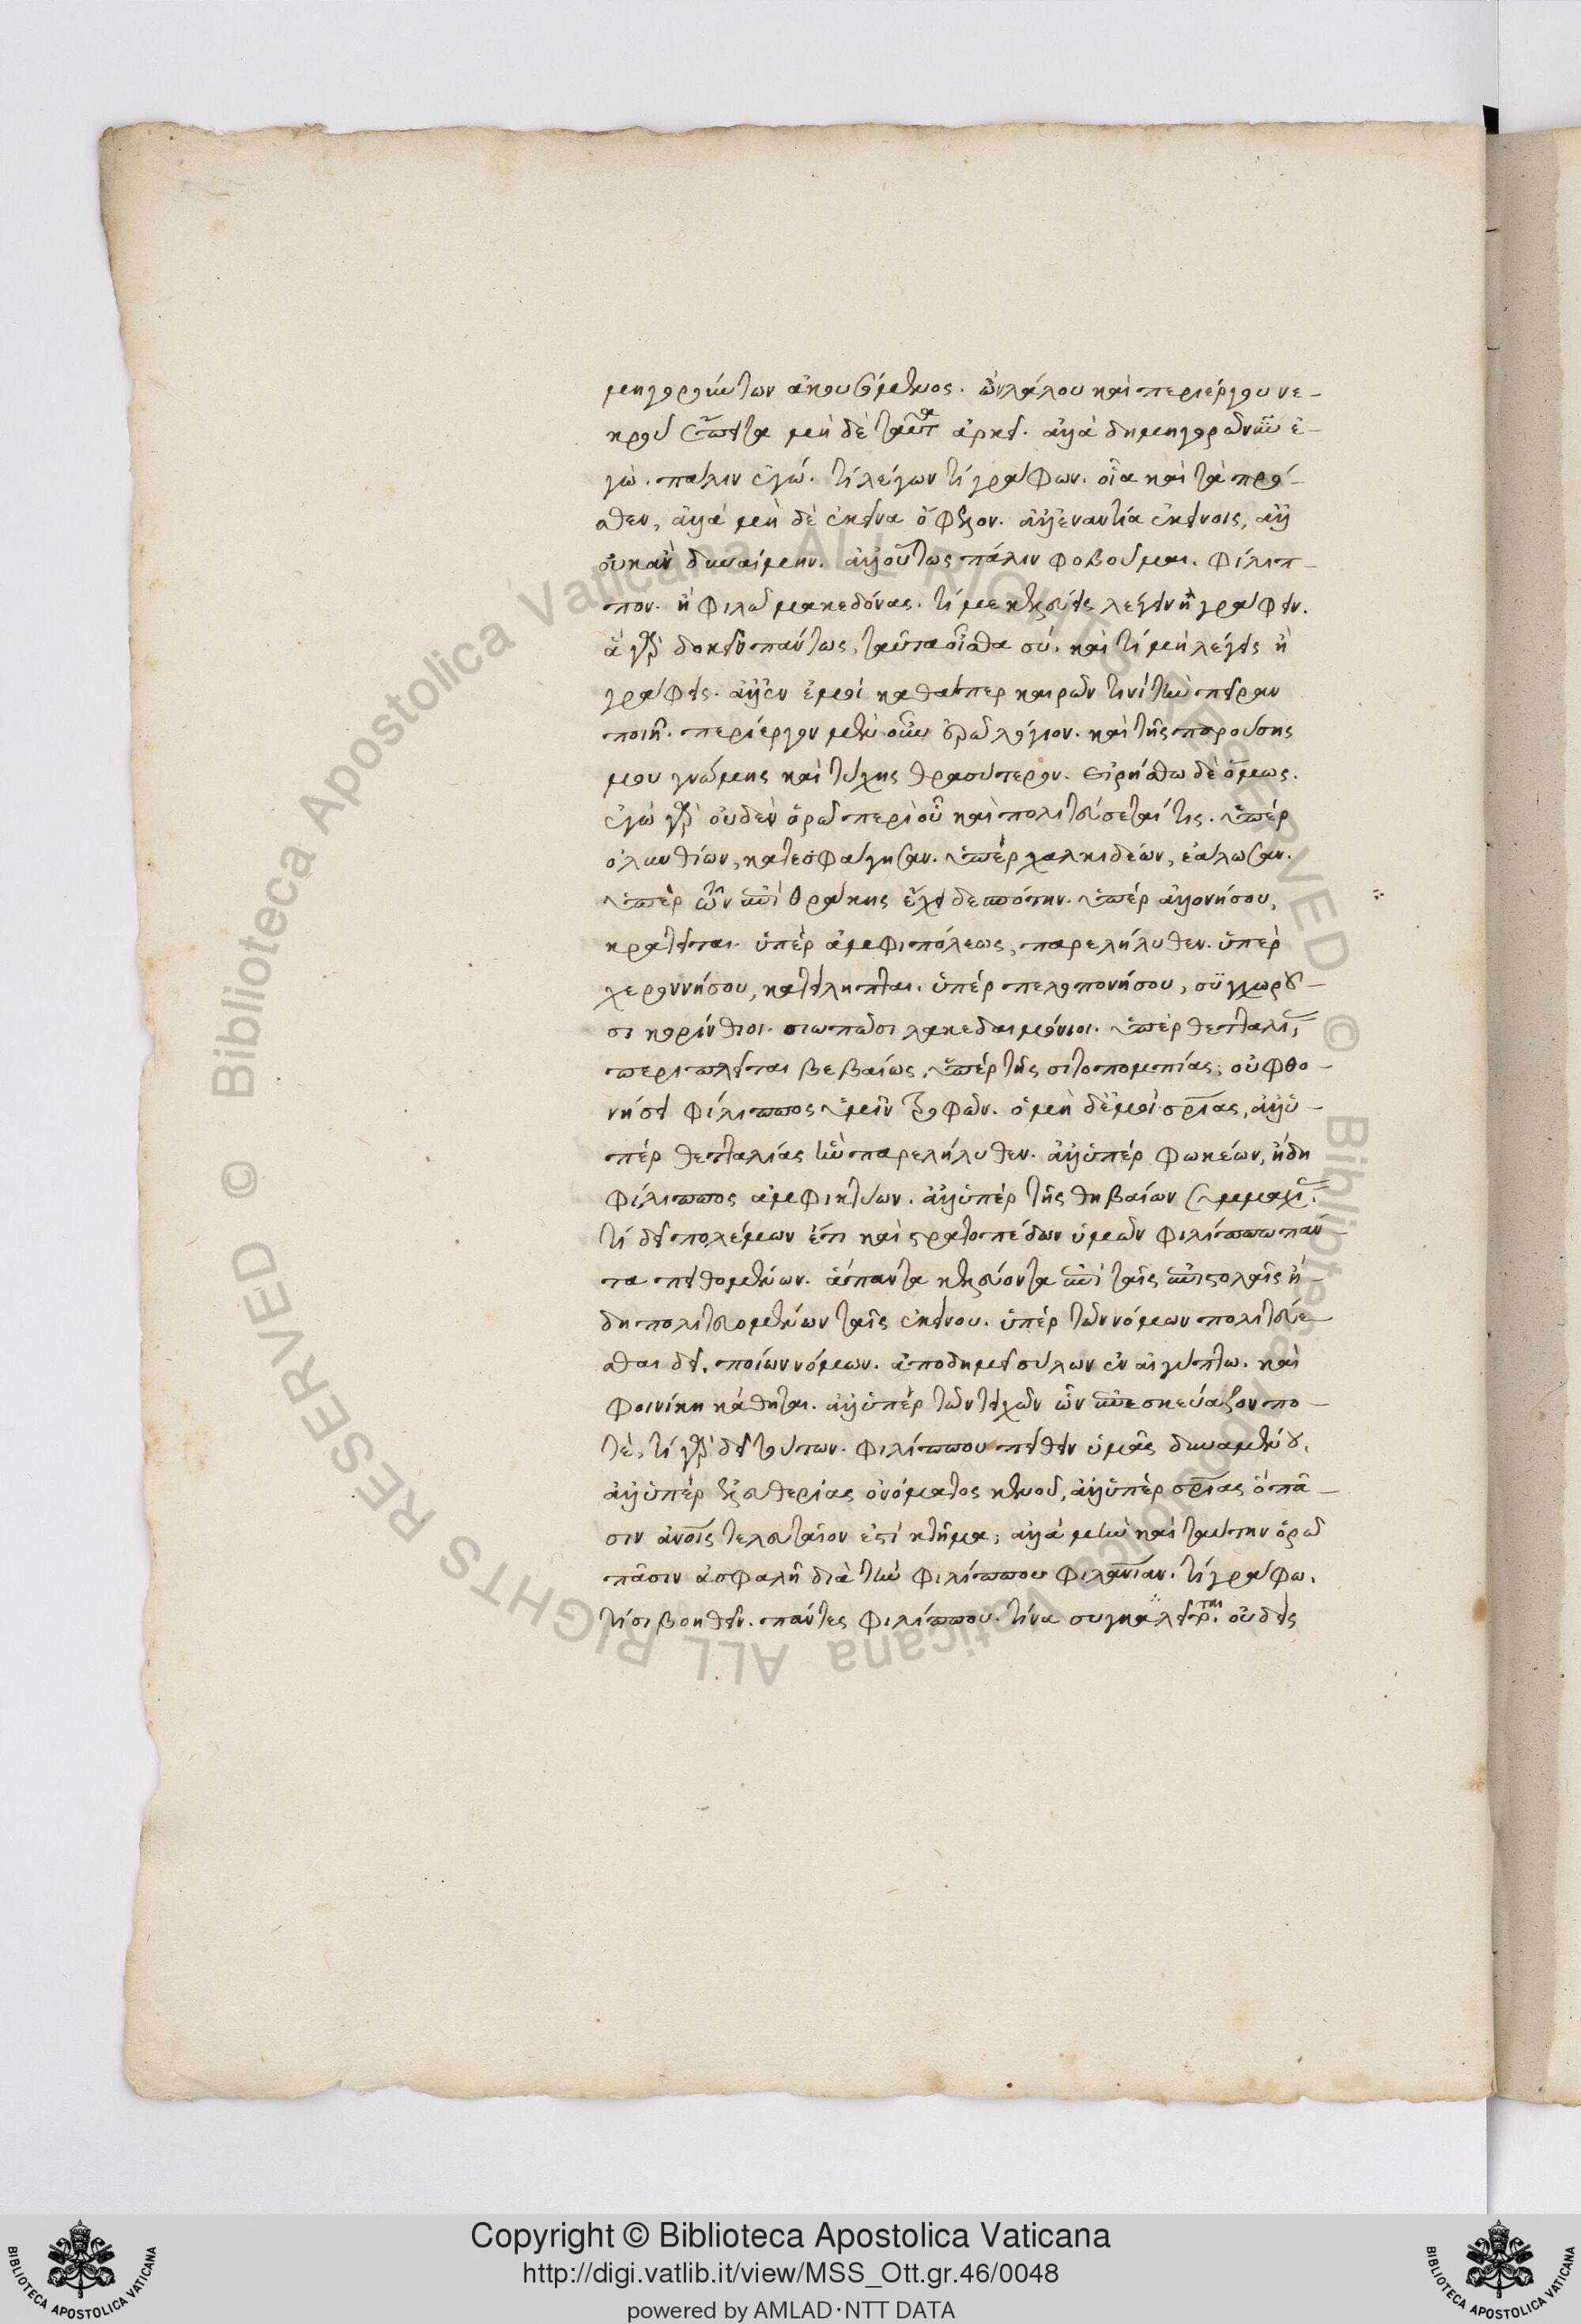 μηγορούντων ἀκουσόμενος. ὢν λάλου καὶ περιέργου νε-
κροῦ σιωπ μὴ δὲ ταῦτα ἀρκεῖ. ἀλλὰ δημηγορῶν ἐ-
γὼ. πάλιν ἐγώ. τί λέγων τί γράφων. οἷα καὶ τὰ πρό-
σθεν, ἀλλὰ μὴ δὲ ἐκεῖνα ὄφελον. ἀλλ' ἐναντία ἐκείνοις, ἀλλ'
οὐκ ἂν δυναίμην. ἀλλ' οὕτως πάλιν φοβοῦμαι. φίλιπ-
πον. ἢ φιλῶ μακεδόνας. τί με κελεύεις λέγειν ἢ γράφειν.
ἃ γὰρ δοκεῖν πάντως, ταῦτα οἶσθα σύ. καὶ τί μὴ λέγεις ἢ
γράφεις. ἀλλ' ἐν ἐμοὶ καθάπερ καιρῶν τινὶ τὴν πεῖραν
ποιῇ. περίεργον μὲν οὖν ὁρῶ λόγιον. καὶ τῆς παρούσης
μου γνώμης καὶ τύχης θρασύτερον. εἰρήσθω δὲ ὅμως.
ἐγὼ γὰρ οὐδὲν ὁρῶ περὶ οὗ καὶ πολιτεύσεταί τις. ὑπὲρ
ὀλυνθίων, κατεσφάγησαν. ὑπὲρ χαλκιδέων, ἑάλωσαν.
ὑπὲρ τῶν ἐπὶ θράκης ἔχει δεσπότην. ὑπὲρ ἁλοννήσου,
κρατεῖται. ὑπὲρ ἀμφιπόλεως, παρελήλυθεν. ὑπὲρ
χερρονήσου, κατείληπται. ὑπὲρ πελοπονήσου, συγχωροῦ-
σι κορίνθιοι. σιωπῶσι λακεδαιμόνιοι. ὑπὲρ θετταλίας,
περιπλεῖται βεβαίως. ὑπὲρ τῆς σιτοπομπίας, οὐ φθο-
νήσει φίλιππος ὑμῖν τροφῶν. ὁ μὴ δ' ἐμοὶ σωτηρίας, ἀλλ' ὑ-
πὲρ θετταλίας παρελήλυθεν. ἀλλ' ὑπὲρ φωκέων, ἤδη
φίλιππος ἀμφικτύων. ἀλλ' ὑπὲρ τῆς θηβαίων συμμαχίας.
τί δεῖ πολέμων ἔτι καὶ στρατοπέδων ὑμῶν φιλίππω πάν
τα πειθομένων. ἅπαντα κελεύοντα ἐπὶ ταῖς ἐπιστολαῖς ἤ-
δη πολιτευομένων ταῖς ἐκείνου. ὑπὲρ τῶν νόμων πολιτεύε
σθαι δεῖ. ποίων νόμων. ἀποδημεῖ σόλων ἐν αἰγύπτω. καὶ
φοινίκη κάθηται. ἀλλ' ὑπὲρ τῶν τειχῶν ὧν ἐπεσκεύαζον πο-
τὲ, τί γὰρ δεῖ τούτων. φιλίππου πείθειν ὑμᾶς δυναμένου.
ἀλλ' ὑπὲρ ἐλευθερίας ὀνόματος κενοῦ, ἀλλ' ὑπὲρ σωτηρίας ὃ πᾶ-
σιν ἀνθρώποις τελευταῖον ἐστὶ κτῆμα; ἀλλὰ μὴν καὶ ταύτην ὁρῶ
πᾶσιν ἀσφαλῆ διὰ τὴν φιλίππου φιλανθρωπίαν. τί γράφω.
τίσι βοηθεῖν. πάντες φιλίππου. τίνα συγκαλεῖ. οὐδεὶς